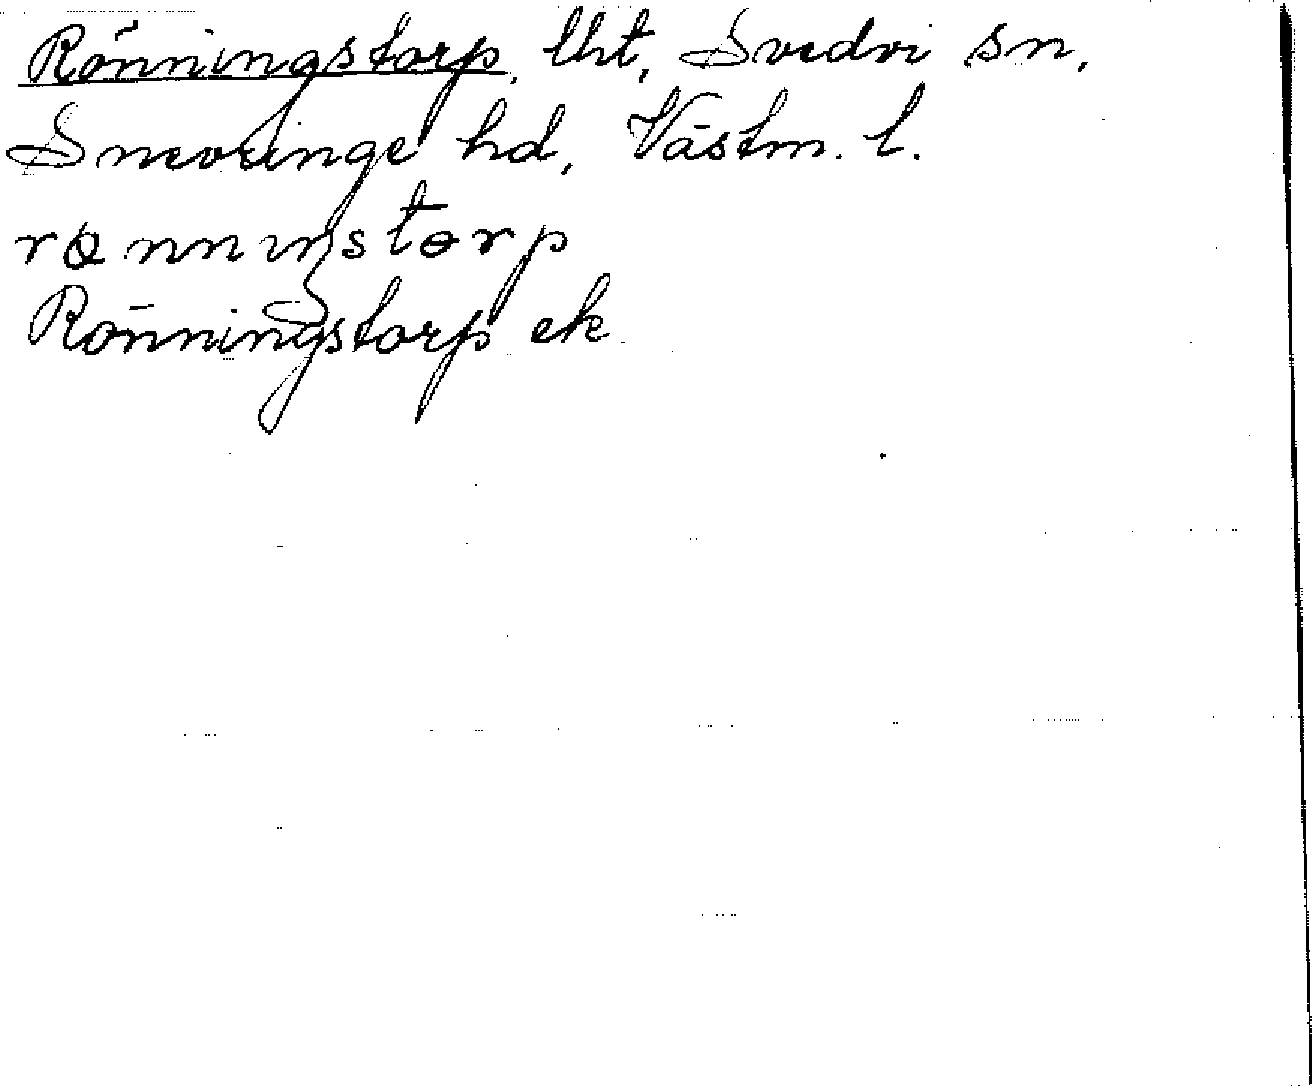 Rönningstorp, lht, Svedvi sn,
Snevringe hd, Västm. l.
rɵnnıŋstɵrp
Rönningstorp ek